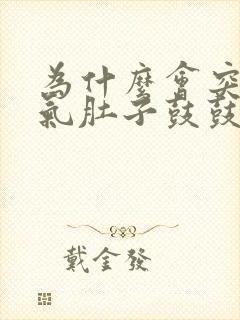 為什麼會突
氣肚子鼓鼓
戴金發